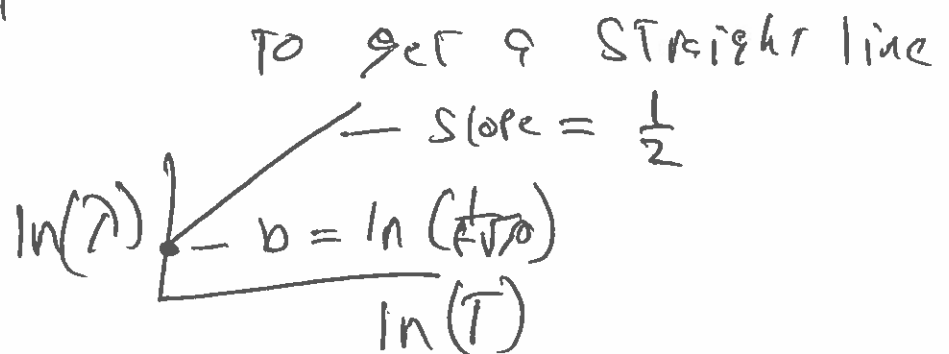 To get a straight line
— slope = 1/2
ln(λ) — b = ln(1/(f√ρ))
ln(T)